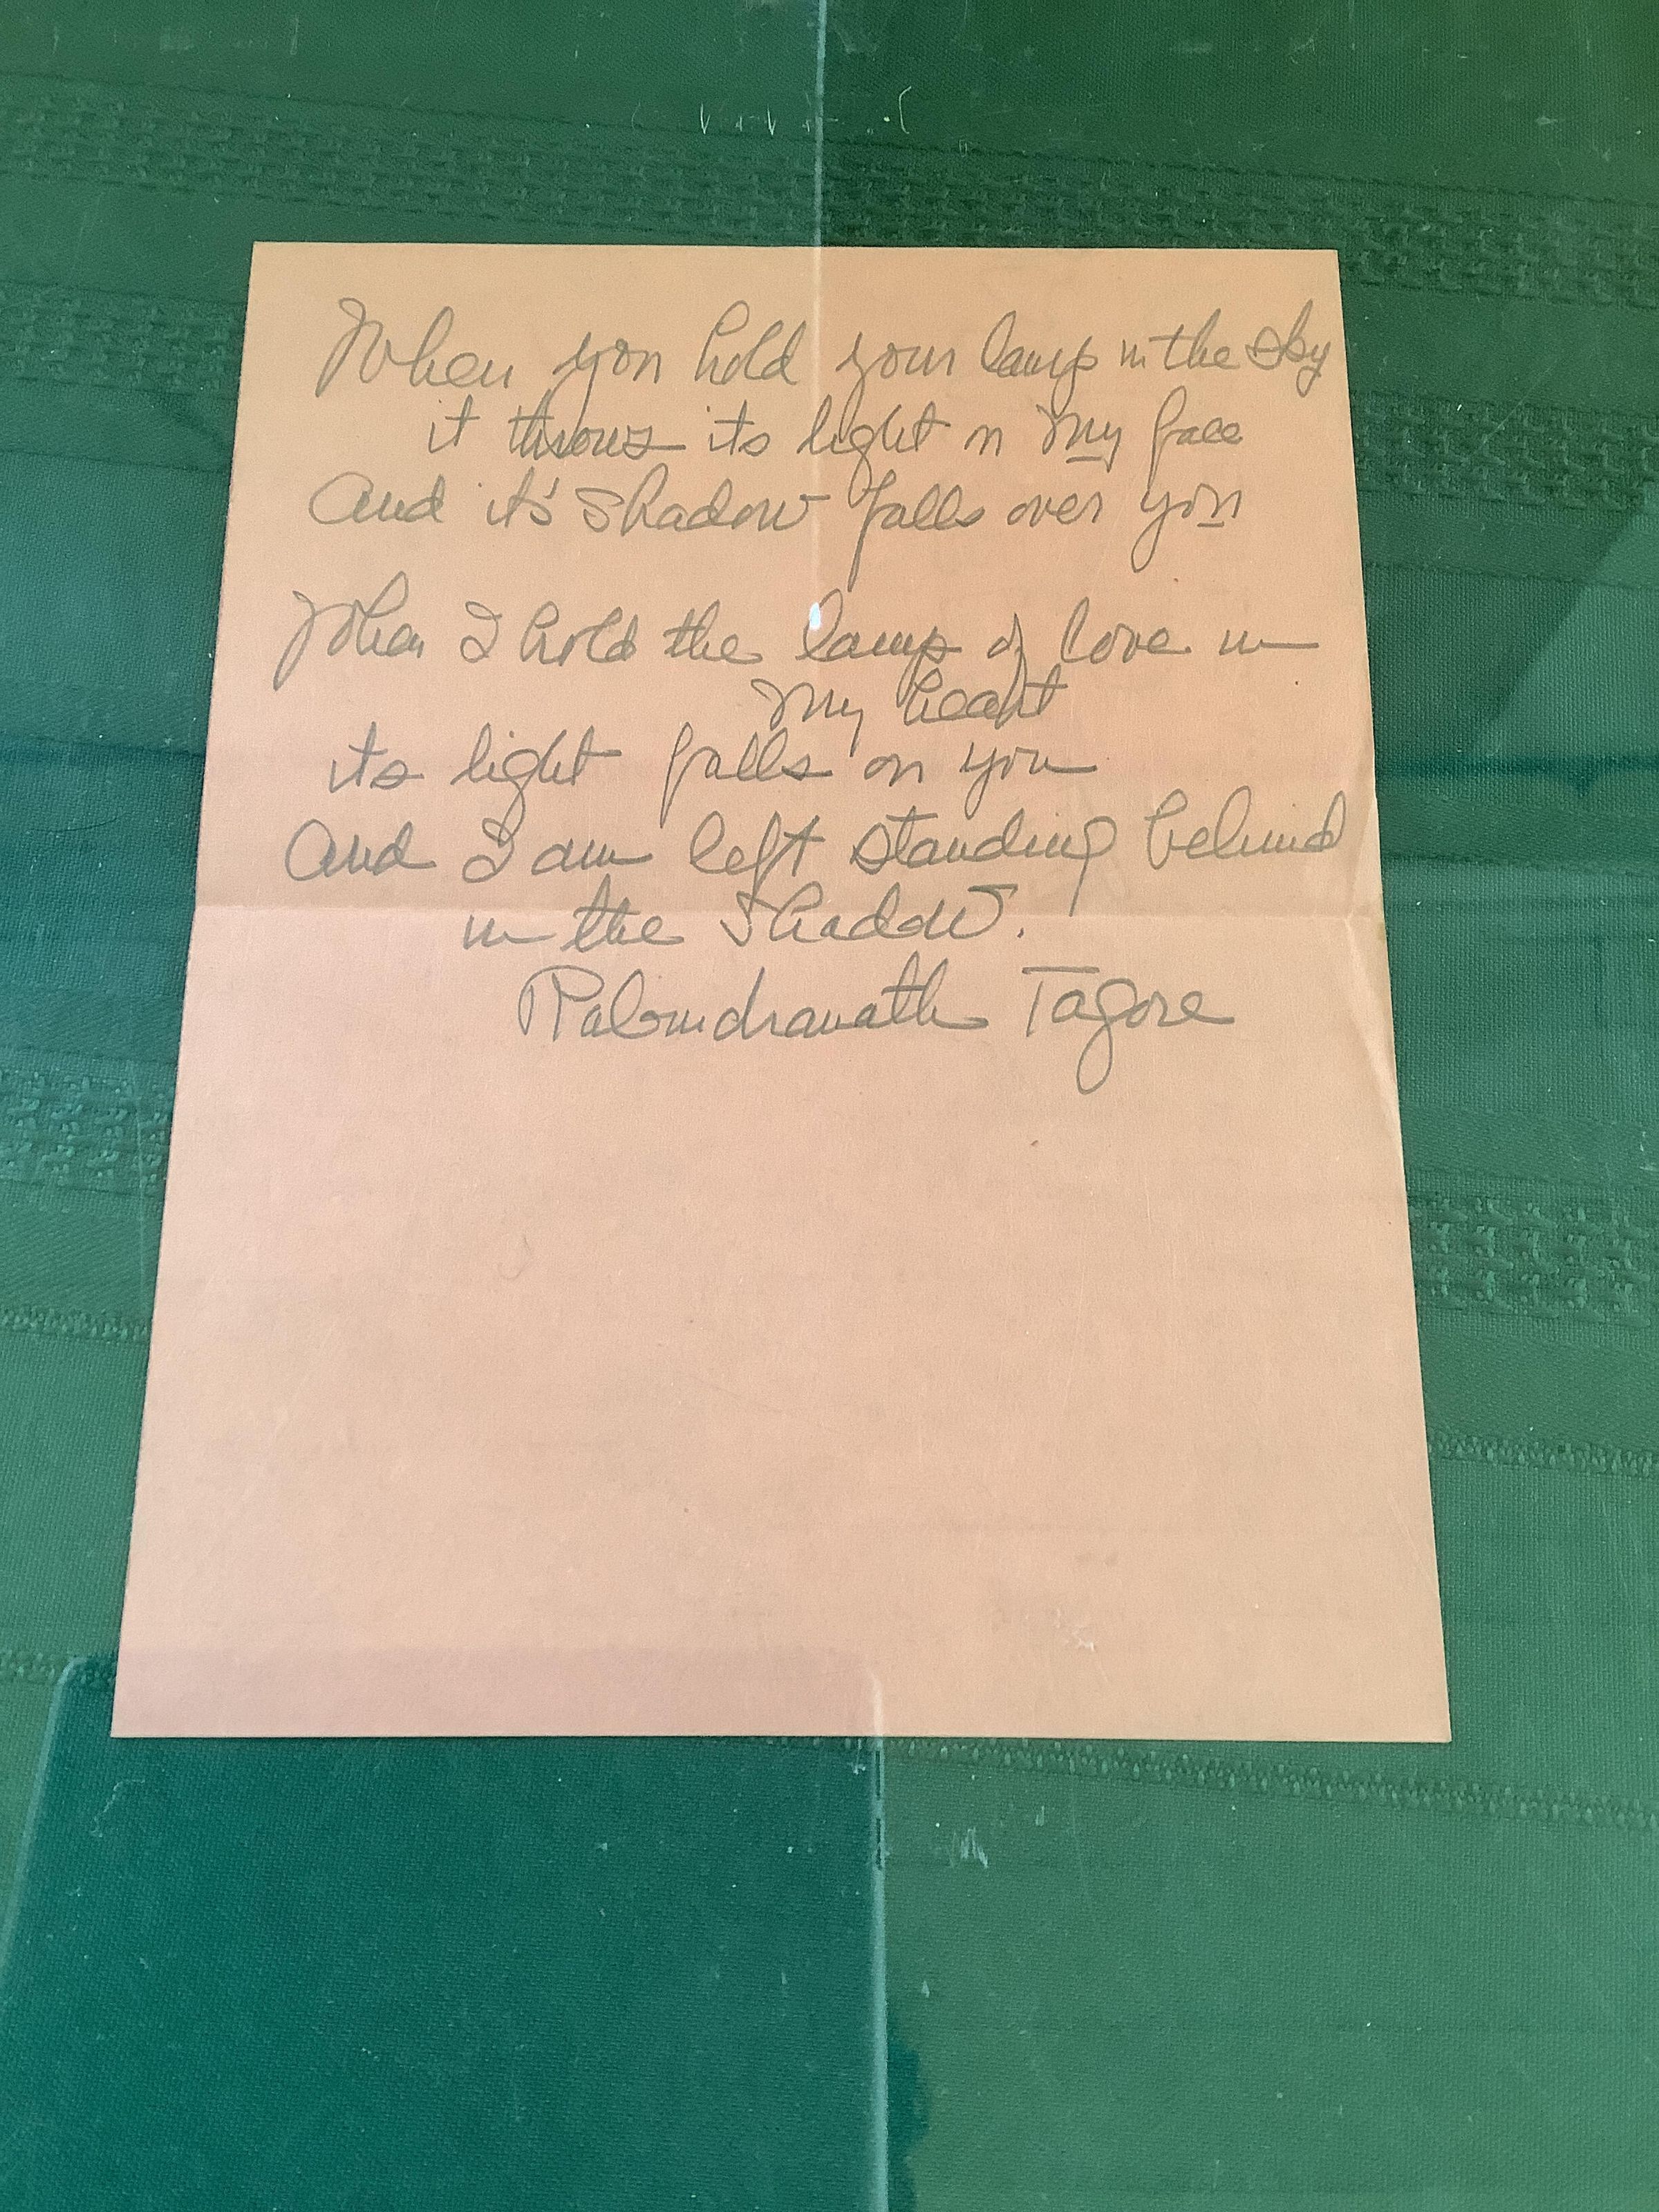 When you hold your lamp in the sky
it throws its light on my face
And it's shadow falls over you
When I hold the lamp of love in
my heart
its light falls on you
And I am left standing behind
in the shadow.
Rabindranath Tagore